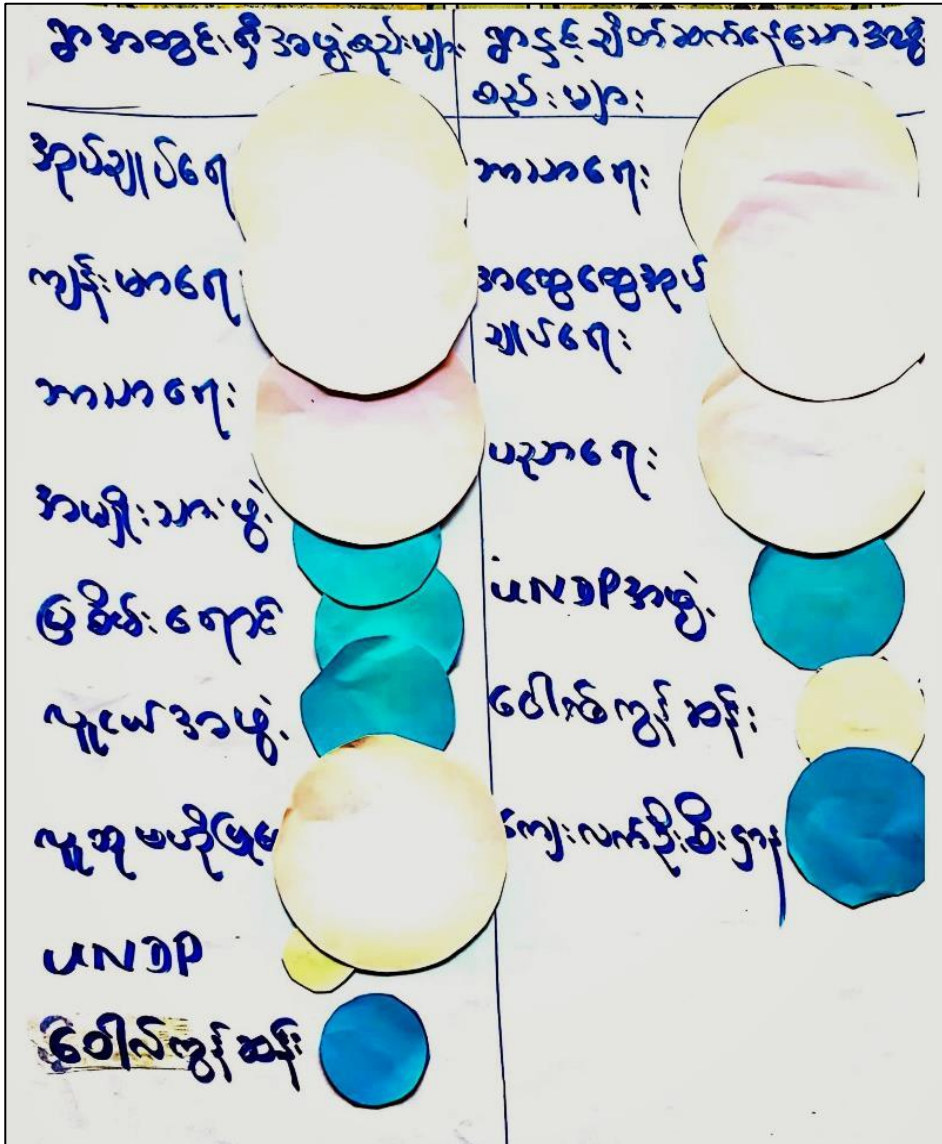 ရွာအတွင်းရှိအဖွဲ့စည်းများ
အုပ်ချုပ်ရေ
ကျန်းမာရေ
ဘာသာရေး
အမျိုးသားဖွဲ့
မြစိမ်းရောင်
လူငယ်အဖွဲ့
UNDP
ဝေါလ်ကွန်ဆန်း
ရွာနှင့်ချိတ်ဆက်နေသောအဖွဲ့
စည်းများ
ဘာသာရေး
အထွေထွေအုပ်
ချုပ်ရေး
ပညာရေး
UNDPအဖွဲ့
ကျေးလက်ဦးစီးဌာန